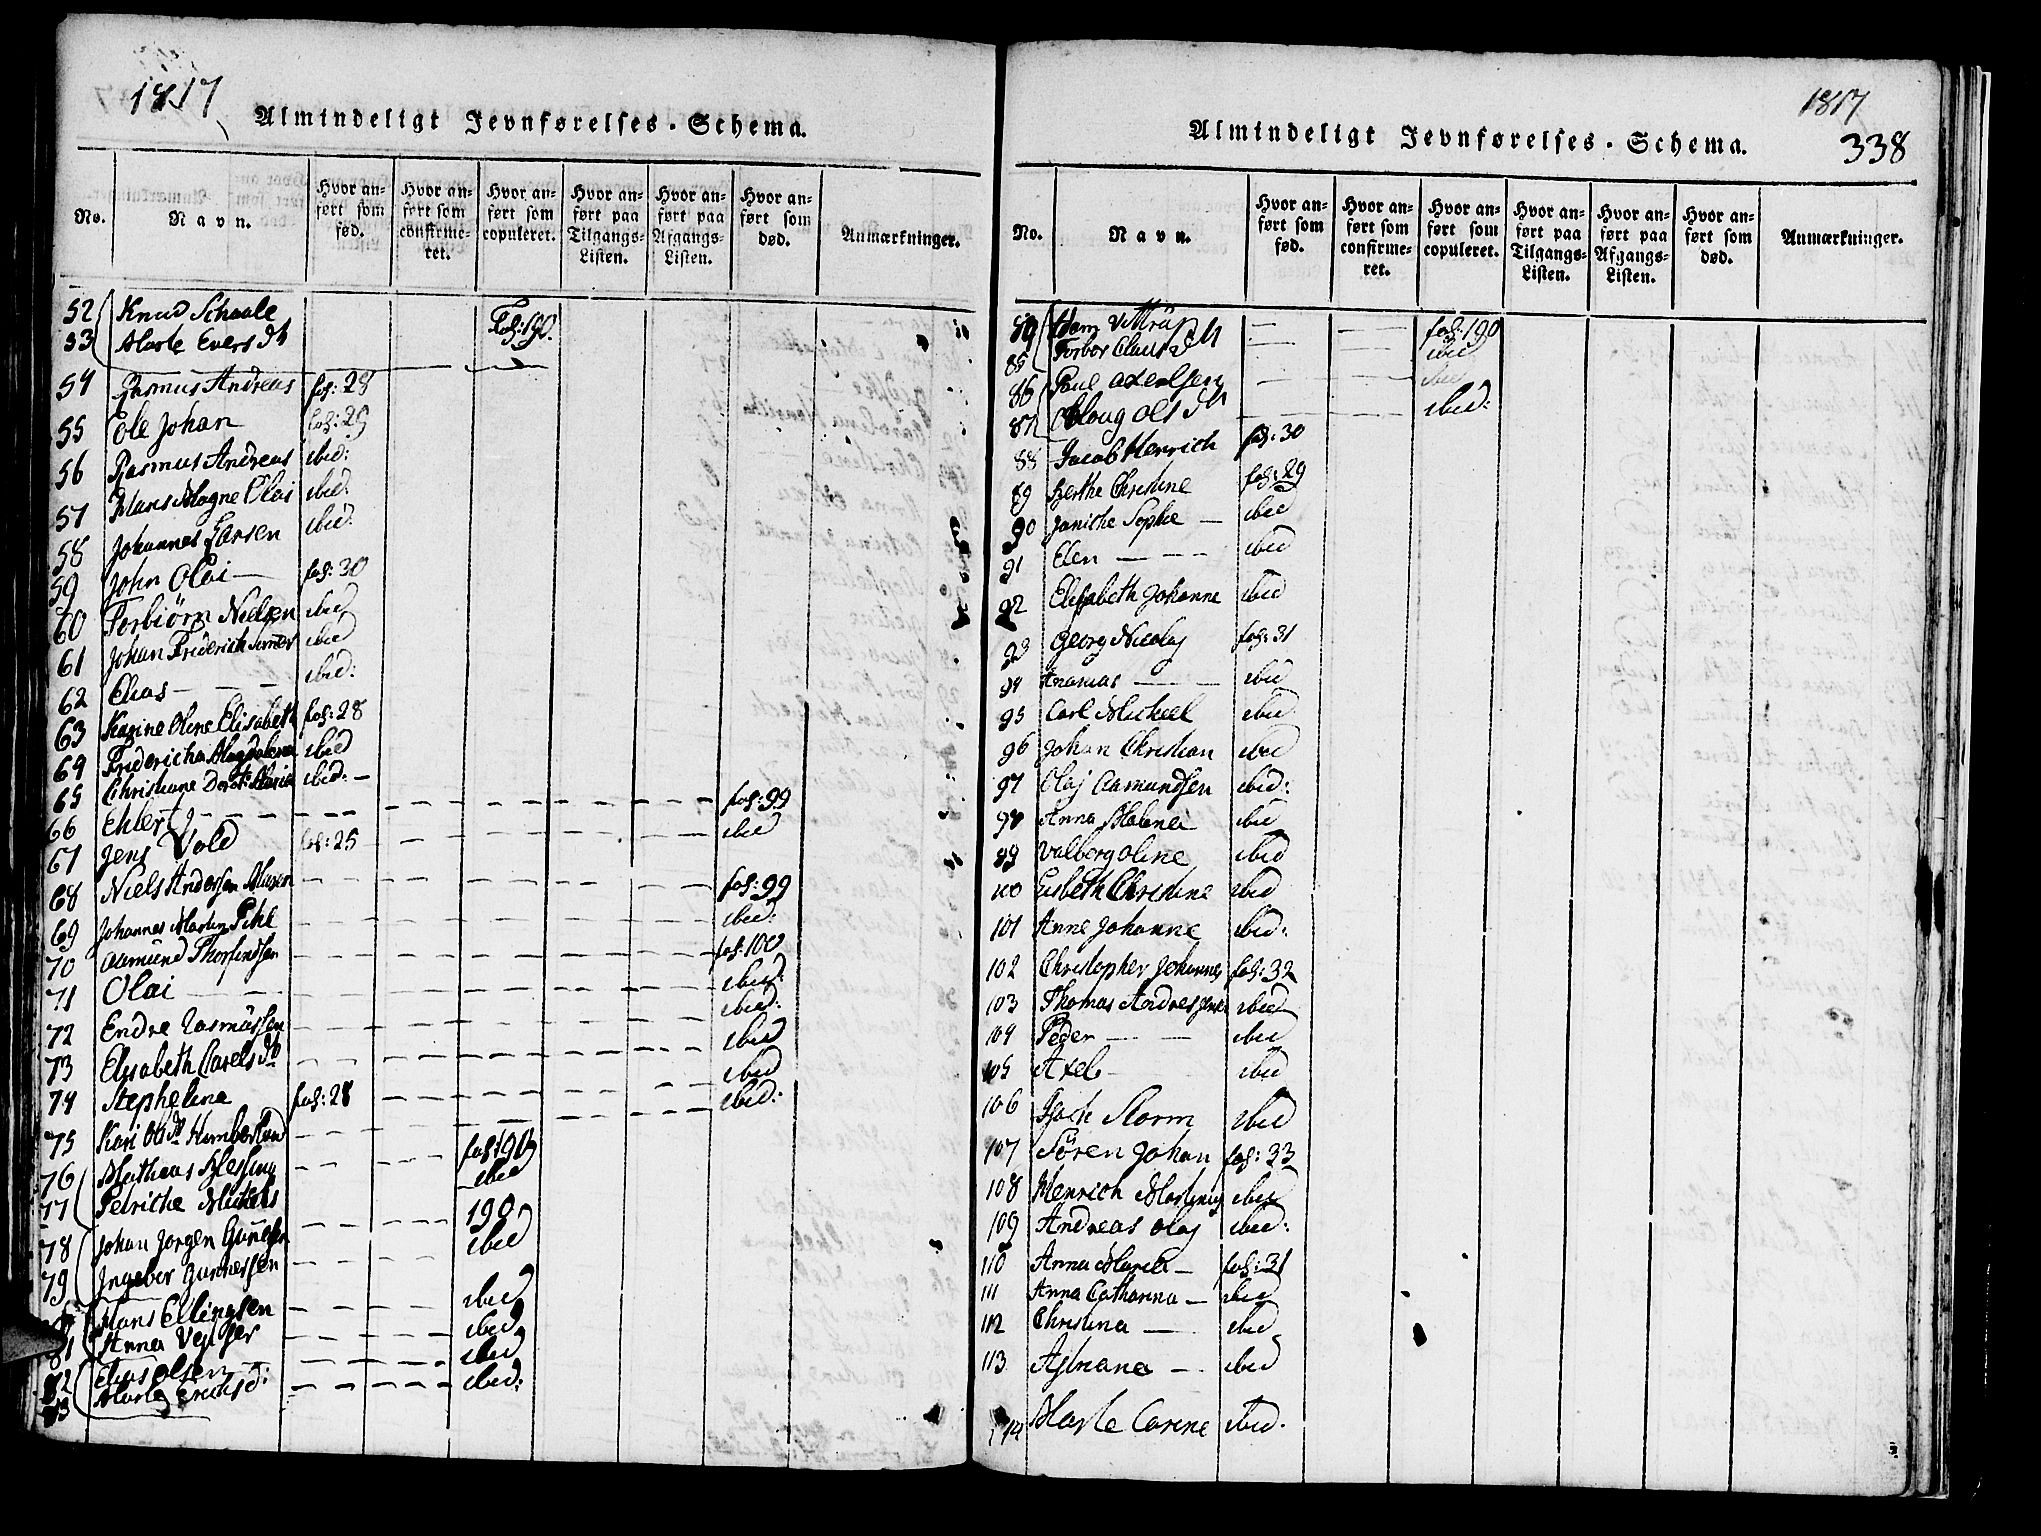 1817
Almindeligt Jevnførelses-Schema.
No.
Navn.
Hvor anført som fød.
Hvor anført som confirmeret.
Hvor anført som copuleret.
Hvor anført paa Tilgangs-Listen.
Hvor anført paa Afgangs-Listen.
Hvor anført som død.
Anmærkninger.
52 Knud Schaale
53 Marte Evers Dtr Fol: 190.
54 Rasmus Andreas fol: 28
55 Ole Johan fol: 29
56 Rasmus Andreas ibid:
57 Hans Magne Olai ibid:
58 Johannes Larsen ibid:
59 John Olai fol: 30
60 Torbiörn Nielsen ibid
61 Johan Friderich ibid
62 Elias ibid:
63 Karine Oline Elisabeth fol: 28
64 Fridericha Magdalena ibid
65 Christiane Maria ibid:
66 Ehlert J fol: 99
67 Jens Vold fol: 25 ibid
68 Niels Andersen fol: 99
69 Johannes Martin Pihl ibid:
70 Aamund fol: 100
71 Olai ibid:
72 Endre Rasmussen ibid:
73 Elisabeth Carels Dtr ibid
74 Stephelina fol: 28 ibid
75 Kari ibid:
76 Mathias fol: 190
77 Petriche Michels ibid
78 Johan Jørgen 190
79 Ingebor Gunnersen ibid
Hans Ellingsen ibid
81 Anna ibid
82 Elias Olsen ibid
83 Marte Erichs D: ibid:
1817
338
Almindeligt Jevnførelses-Schema.
No.
Navn.
Hvor anført som fød.
Hvor anført som confirmeret.
Hvor anført som copuleret.
Hvor anført paa Tilgangs-Listen.
Hvor anført paa Afgangs-Listen.
Hvor anført som død.
Anmærkninger.
Vittrup fol: 190
85 Torbor Claus Dtr ibid
86 Poul Axelsen ibid
87 Ols Dtr ibid:
88 Jacob Henrich fol: 30
89 Berthe Christine fol: 29
90 Janiche Sophe ibid
91 Elen ibid
92 Elisabeth Johanne ibid
93 Georg Nicolay fol: 31
94 ibid
95 Carl Michael ibid
96 Johan Christian ibid
97 Olaj Aamundsen ibid:
98 Anna Malena ibid
99 Valborg Oline ibid
100 Lisbeth Christine ibid
101 Anne Johanne ibid:
102 Christopher Johannes fol: 32
103 Thomas Andreas ibid
104 Peder ibid
105 Axel ibid
106 Storm ibid
107 Sören Johan fol: 33
108 Henrich ibid
109 Andreas Olaj ibid:
110 Anna Maria fol: 31
111 Anna Catharina ibid
112 Christina ibid
113 ibid
114 Marte Carine ibid.